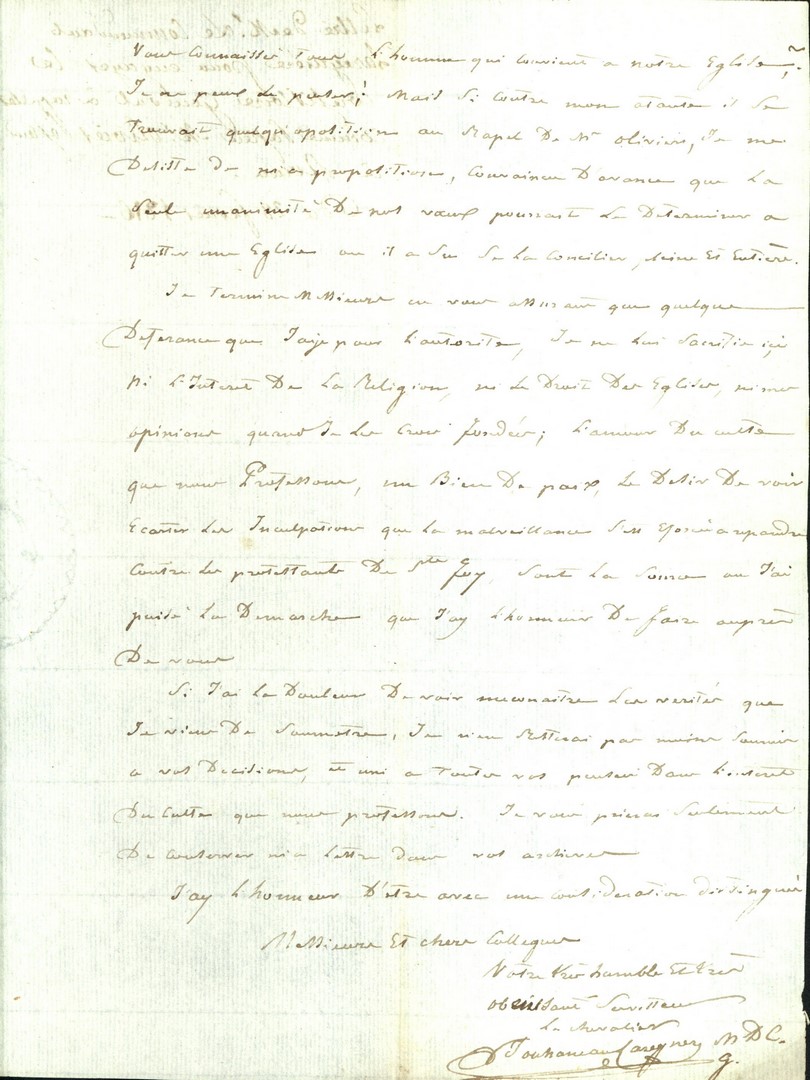 Vous connaissés tous L'homme qui convient a notre Eglise,
Je ne peux de puter; Mais si contre mon atante il se
trouvait quelqu'opotition au Rapel De Mr Oliviers, Je me
Desiste de mes propotitions, Convaincu D'avance que La
seule unanimité De nos vœux pourrait Le Determiner a
quitter une Eglise ou il a su se La Concilier, pleine Et Entière.
Je termine Messieurs en vous assurant que quelque
Deferance que J'aye pour L'autorité, Je ne Lui sacrifie ici
ni L'Interet De La Religion, ni Le Droit Des Eglises, ni mes
opinions quand Je Les Crois fondées; L'amour Du culte
que nous Professons, un Bien De paix, Le Desir De voir
Ecarter Les Inculpations que La malveillance s'est Eforcé a repandre
Contre Les protestants De Ste Foy, sont La source ou J'ai
puisé La Demarche que J'ay L'honneur De faire auprès
De vous
Si J'ai La Douleur De voir meconaitre Les verités que
Je viens De Soumetre, Je n'en Resterai pas moins soumis
a vos Decisions, et uni a toutes vos pensées Dans L'interet
Du Culte que nous professons. Je vous prierai seulement
De conserver ma Lettre dans vos archives
J'ay L'honneur D'être avec une consideration distinguée
Messieurs Et chers Collegues
Votre très humble Et très
obeissant Serviteur
Le chevalier
M D C.